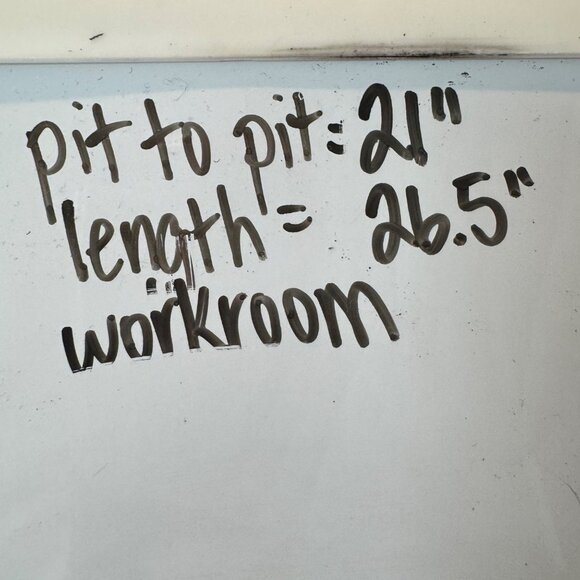 pit to pit: 21"
length = 26.5"
workroom